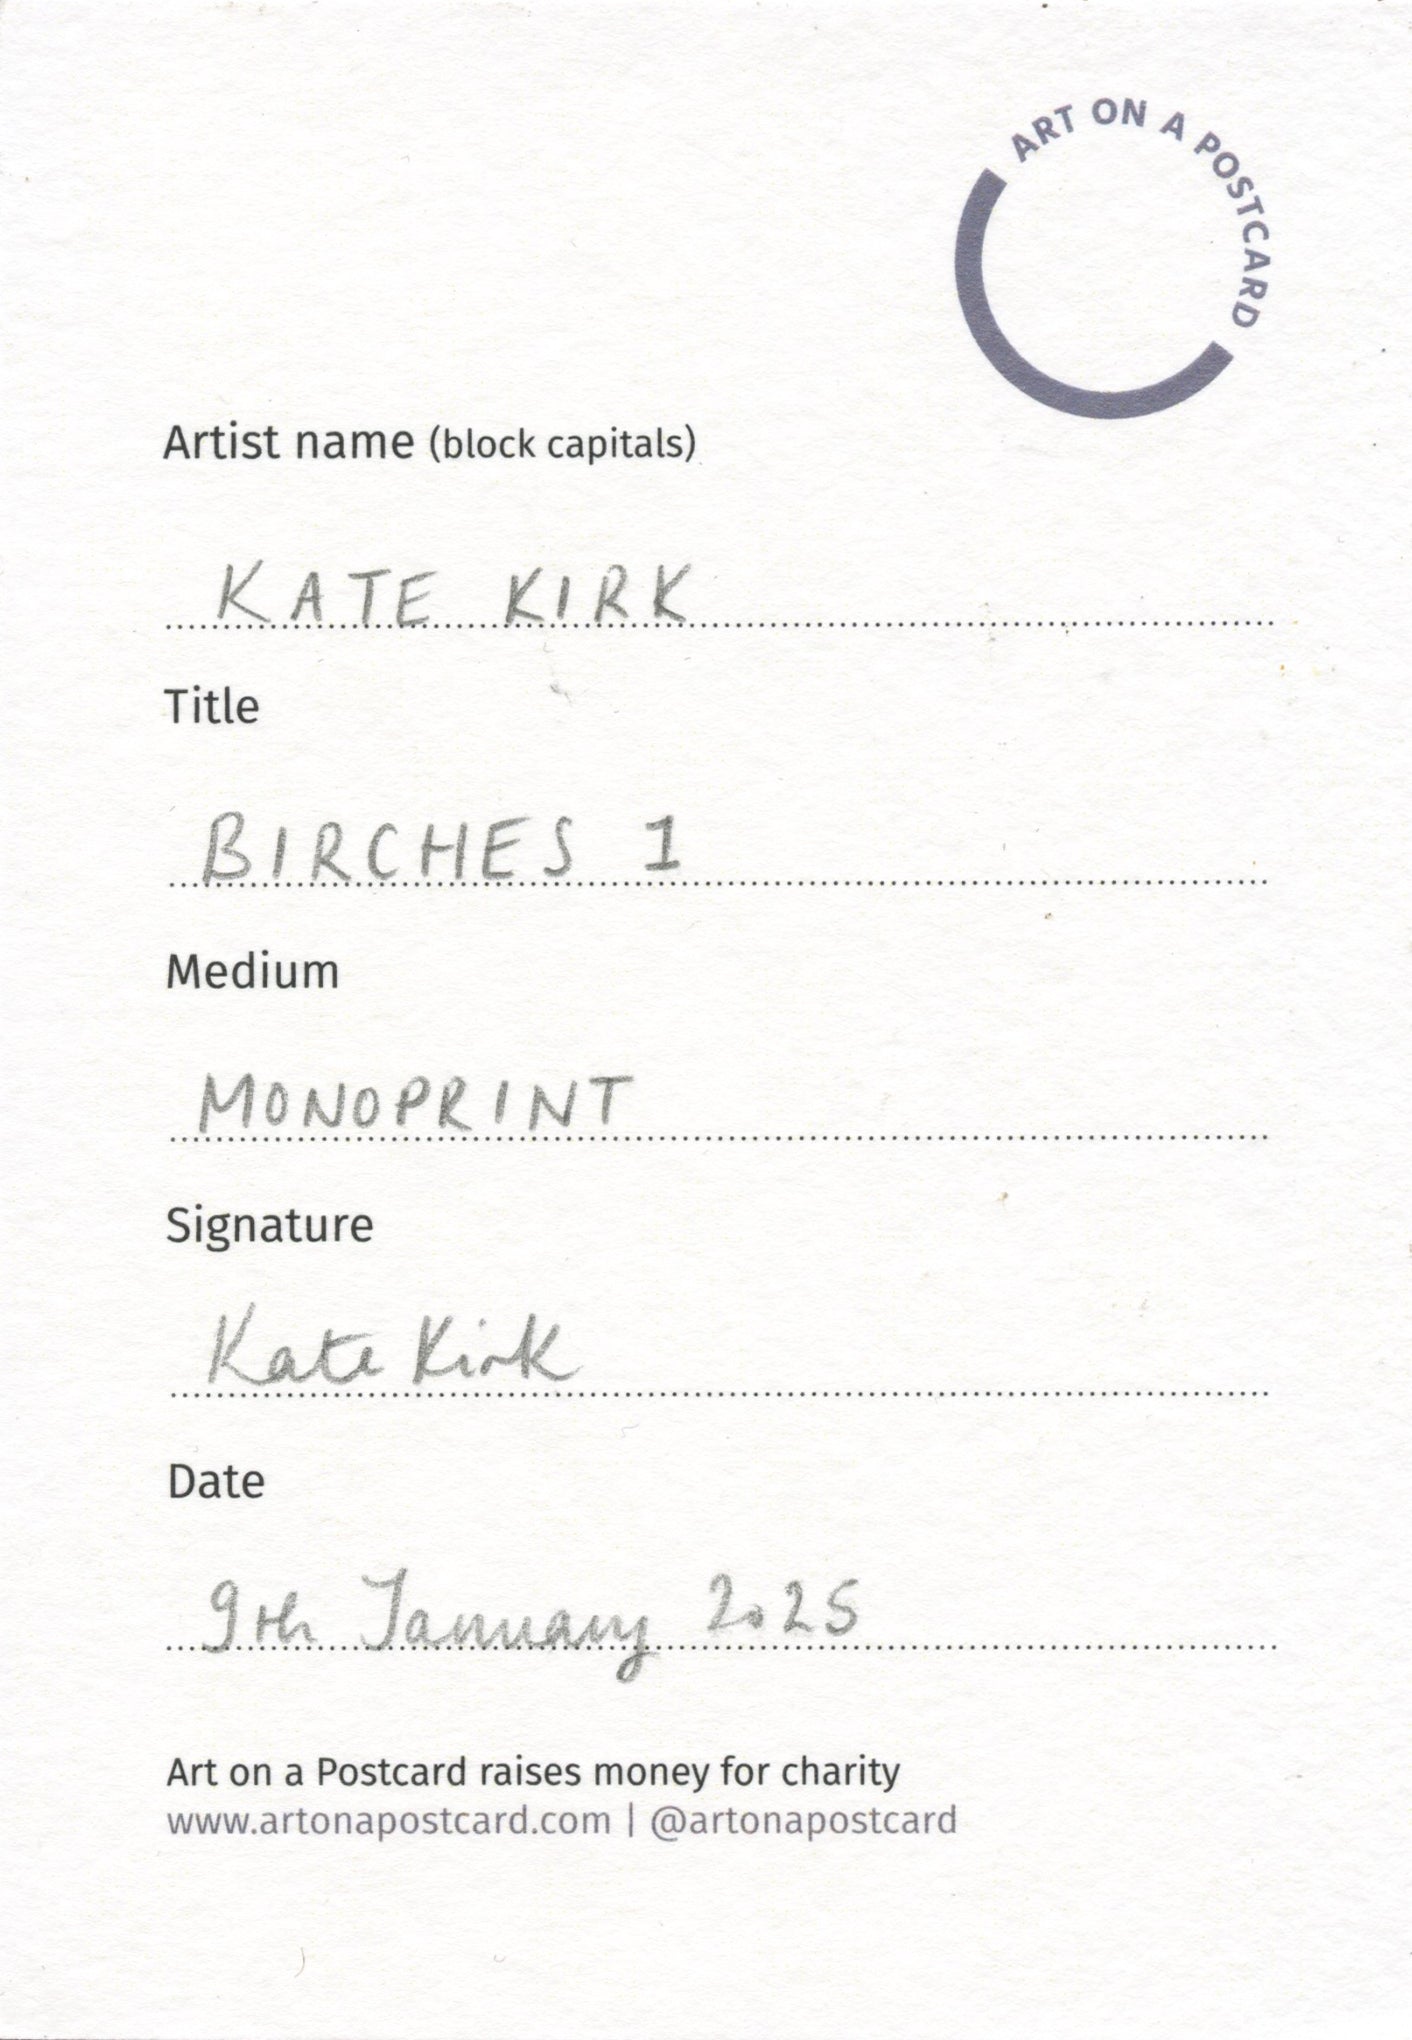 ART ON A POSTCARD
Artist name (block capitals)
KATE KIRK
Title
BIRCHES 1
Medium
MONOPRINT
Signature
Kate Kirk
Date
9th January 2025
Art on a Postcard raises money for charity
www.artonapostcard.com | @artonapostcard